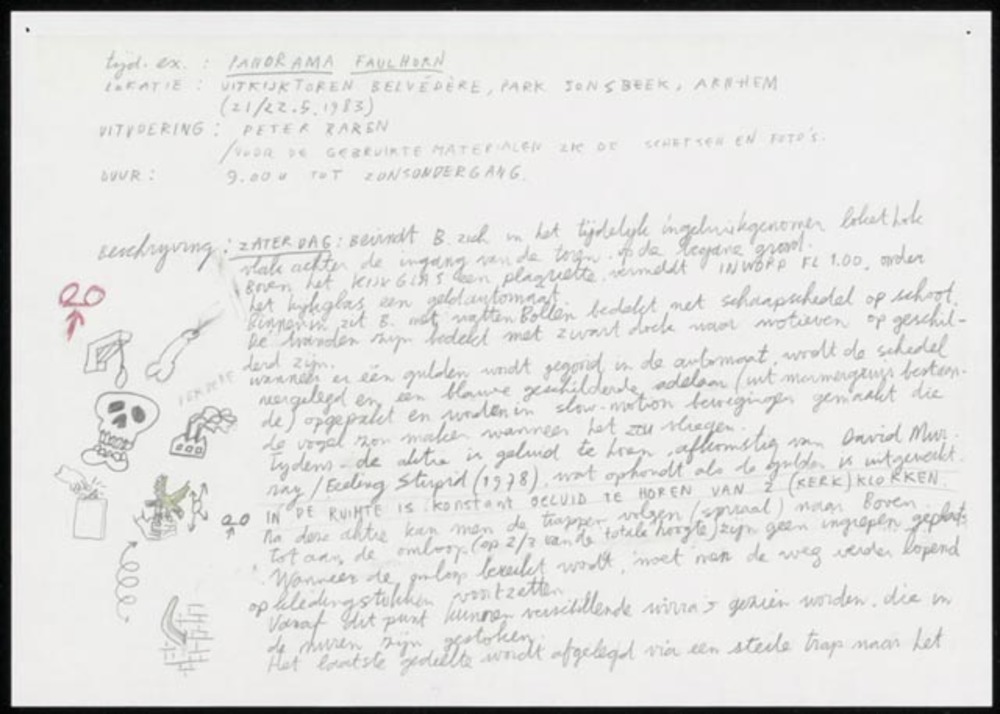 tijd. ex. : PANORAMA FAULHORN
LOKATIE : UITKIJKTOREN BELVÉDÈRE, PARK SONSBEEK, ARNHEM
(21/22.5.1983)
UITVOERING : PETER BAREN
/VOOR DE GEBRUIKTE MATERIALEN ZIE DE SCHETSEN EN FOTO'S.
DUUR : 9.00 u TOT ZONSONDERGANG.
Beschrijving : ZATERDAG : Bevindt B. zich in het tijdelijk ingebruikgenomen loket hok
vlak achter de ingang van de toren. op de begane grond.
Boven het KIJKGLAS een plaquette. vermeldt INWORP FL 1.00, onder
het kijkglas een geldautomaat.
Binnenin zit B. met watten Bollen bedekt met schaapschedel op schoot.
De wanden zijn bedekt met zwart doek waar motieven op geschil-
derd zijn.
wanneer er één gulden wordt gegooid in de automaat, wordt de schedel
neergelegd en een blauwe geschilderde adelaar (uit marmergruis bestaan-
de) opgepakt en worden in slow-motion bewegingen gemaakt die
de vogel zou maken wanneer het zou vliegen.
Tydens de aktie is geluid te horen, afkomstig van David Mur-
ray / Feeling Stupid (1978), wat ophoudt als de gulden is uitgewerkt.
IN DE RUIMTE IS KONSTANT GELUID TE HOREN VAN 2 (KERK)KLOKKEN.
Na deze aktie kan men de trappen volgen (spiraal) naar Boven.
Tot aan de omloop (op 2/3 van de totale hoogte) zijn geen ingrepen geplaatst
. Wanneer de omloop bereikt wordt, moet men de weg verder lopend
op kledingstukken voortzetten.
Vanaf dit punt kunnen verschillende gezien worden, die in
de muren zijn gestoken.
Het laatste gedeelte wordt afgelegd via een steile trap naar het